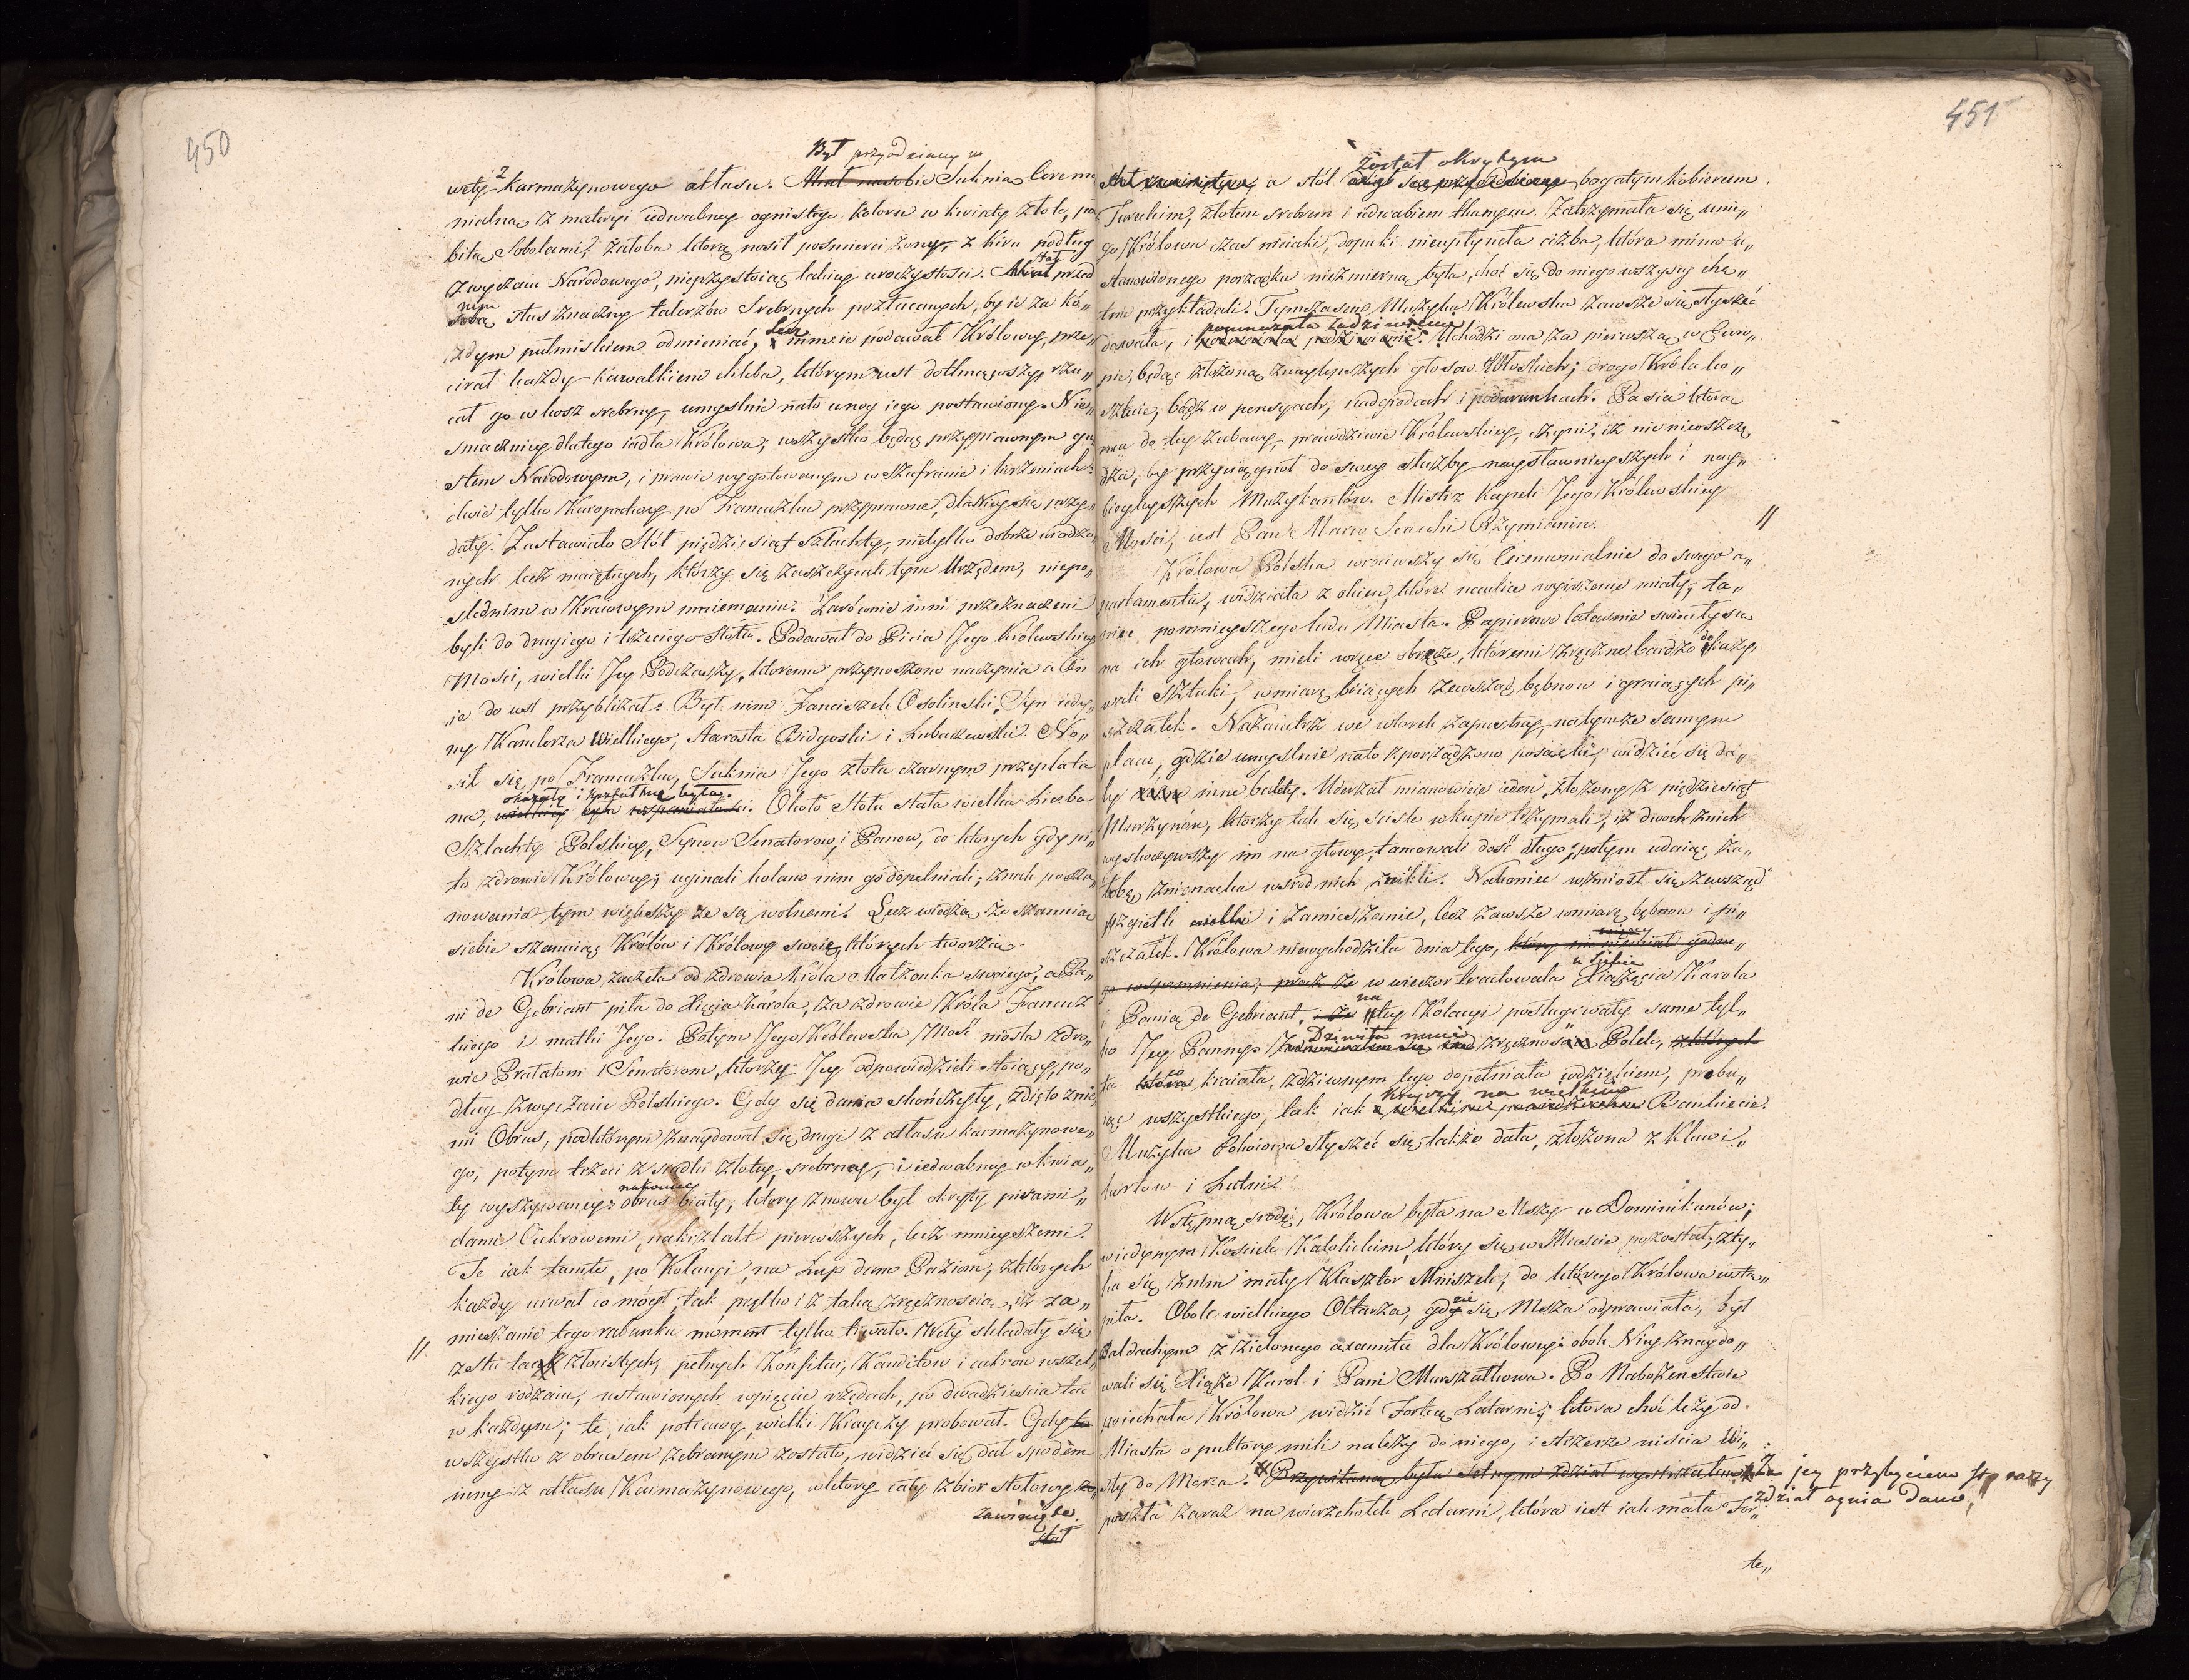 450
Był przyodziany w
wety z karmazynowego atłasu. Miał na sobie Suknią Ceremo
nialną z materyi jedwabney ognistego koloru w kwiaty złote, po
bitą Sobolami; żałoba którą nosił pośmierci żony, z kiru podług
stał
zwyczaiu Narodowego, nieprzystoiąc takiey uroczystości. Miał przed
nim
sobą stus znaczny talerzów Srebrnych pozłacanych, by ie za ka„
Lecz
żdym pułmiskiem odmieniać, nim ie podawał Królowey, prze„
cirał każdy kawałkiem chleba, którym ust dotknąwszy, rzu„
cał go w kosz srebrny, umyślnie nato u nog iego postawiony. Nie„
smaczniey dlatego iadła Królowa; wszystko będąc przyprawnym gu„
stem Narodowym, i prawie wygotowanym w szafranie i korzeniach:
dwie tylko Kuropatwy po Francuzku przyprawne, dla Niey się przy„
dały. Zastawiało Stół piędziesiąt Szlachty, nietylko dobrze urodzo„
nych lecz maiętnych, którzy się zaszczycali tym Urzędem, niepo„
slednim w Kraiowym mniemaniu. Zarównie inni przeznaczeni
byli do drugiego i trzeciego Stołu. Podawał do Picia Jego Królewskiey
Mości, wielki Jey Podczaszy, któremu przynoszono naczynia a On
ie do ust przybliżał: Był nim Franciszek Osoliński, Syn iedy„
ny Kanclerza Wielkiego, Starosta Bidgoski i Lubaczewski. No„
sił się po Francuzku, Suknia Jego złota czarnym przeplata
okazałą i kształtną była.
na, wielkiey była wspaniałości. Około Stołu stała wielka Liczba
Szlachty Polskiey, Synow Senatorow, i Panow, do których gdy pi„
to zdrowie Królowey, uginali kolano nim go dopełniali; znak posza„
nowania tym większy że są wolnemi. Lecz wiedzą że szanuiąc
siebie szanuią Królów i Królowy swoie, których tworzą.
Królowa zaczeła od zdrowia króla Małżonka swoiego, a Pa„
ni de Gebriant piła do Xięcia Karola, za zdrowie Króla Francuz
kiego i matki Jego. Potym Jego Królewska Mość niosła zdro„
wie Prałatom i Senatorom, którzy Jey odpowiedzieli stoiący, po„
dług zwyczaiu Polskiego. Gdy się dania skończyły, zdięto z nie
mi Obrus, pod którym znaydował się drugi z atłasu karmazynowe„
go, potym trzeci z siadki złotey, srebrney, i iedwabney w kwia„
nakoniec
ty wyszywaney: obrus biały, ktory znowu był okryty pirami„
dami Cukrowemi, nakształt pierwszych, lecz mnieyszemi.
Te iak tamte, po Kolacyi, na Łup dano Paziom, z których
każdy urwał co mógł, tak prętko i z taką zręcznością, iż za„
mieszanie tego rabunku moment tylko trwało. Wety składały się
ze stu tac złocistych, pełnych Konfitur, Kanditow i cukrow wszel„
kiego rodzaiu, ustawionych w pięciu rzędach, po dwadzieścia tac
w każdym; te, iak potrawy, wielki Krayczy probował. Gdy to
wszystko z obrusem zebranym zostało, widzieć się dał spodem
inny z atłasu Karmazynowego, w ktory cały zbior stołowy zo„
zawinięto.
stał
451
został okrytym
stał zawiniętym, a stół bogatym kobiercem
Tureckim, złotem srebrem i iedwabiem tkanym. Zatrzymała się u nie„
go Królowa czas nieiaki, dopuki nieupłyneła ciżba, która mimo u„
stanowionego porządku niezmierną była, choć się do niego wszyscy chę„
tnie przykładali. Tymczasem Muzyka Królewska zawsze się słyszeć
pomnażała zadziwienie
dawała, i pomnażała podziwienie. Uchodzi ona za pierwszą w Euro„
pie, będąc złożoną z naylepszych głosow Włoskich; drogo Króla ko„
sztuie, bądź w pensyach, nadgrodach i podarunkach. Pasia którą
ma do tey zabawy, prawdziwie Królewskiey, czyni, iż nic nieoszczę
dza, by przyciągnął do swey służby naysławnieyszych i nay„
biegleyszych Muzykantów. Mistrz Kapeli Jego Królewskiey
Mości, iest Pan Marco Scachi Rzymianin.
Królowa Polska wróciwszy się Ceremonialnie do swego a„
partamentu, widziała z okien, które na ulice wyyrzenie miały, ta„
niec pomnieyszego ludu Miasta. Papierowe latarnie swieciły su
na ich głowach, mieli w ręce obręcze, któremi zręczne bardzo dokazy
wali Sztuki, w miarę biiących zewsząd bębnow i graiących pi„
szczałek. Nazaiutrz we wtorek zapustny, na tymże samym
placu, gdzie umyślnie na to sporządzono posacki, widzieć się da„
ły różne inne balety. Uderzał mianowicie ieden, złożony z piędziesiąt
Murzynow, którzy tak się ścisle w kupie trzymali, iż dwoch z nich
wyskoczywszy im na głowy, tancowali dość długo; potym udaiąc ża„
łobę znienacka wśrod nich znikli. Nakoniec wzniosł się zewsząd
zgiełk wielki i zamieszanie, lecz zawsze w miarę bębnow i pi„
szczałek. Królowa niewychodziła dnia tego, który nic niemiał godne„
u siebie
go wspomnienia, prócz że w wieczor traktowała Xiążęcia Karola
na
i Panią de Gebriant. tey Kolacyi posługiwały same tyl„
Dziwiła mnie
ko Jey Panny. zręczność Polek, z których
ta co kraiała, z dziwnym tego dopełniała wdziękiem, probu„
Krayczy na wielkim
iąc wszystkiego, tak iak Bankiecie.
Muzyka Pokoiowa słyszeć się także dała, złożona z Klawi„
kortow i Lutni.
Wstępną srodę, Królowa była na Mszy u Dominikanów;
w iedynym Kościele Katolickim, który się w Mieście pozostał; sty„
ka się z nim mały Klasztor Mniszek, do którego Królowa wstą„
piła. Obok wielkiego Ołtarza, gdzie się Msza odprawiała, był
Baldachym z zielonego axamitu dla Królowey: obok Niey znaydo„
wali się Xiąże Karol i Pani Marszałkowa. Po Nabożeństwie
poiechała Królowa widzieć Fortecę Latarni; która choć leży od
Miasta o pułtory mili należy do niego, i strzeże uiścia Wi„
sły do Morza. Przywitaną była setnym z dział wystrzałem Za jey przybyciem sto razy
z dział ognia dano,
poszła zaraz na wierzchołek Latarni, która iest iak mała For„
te„